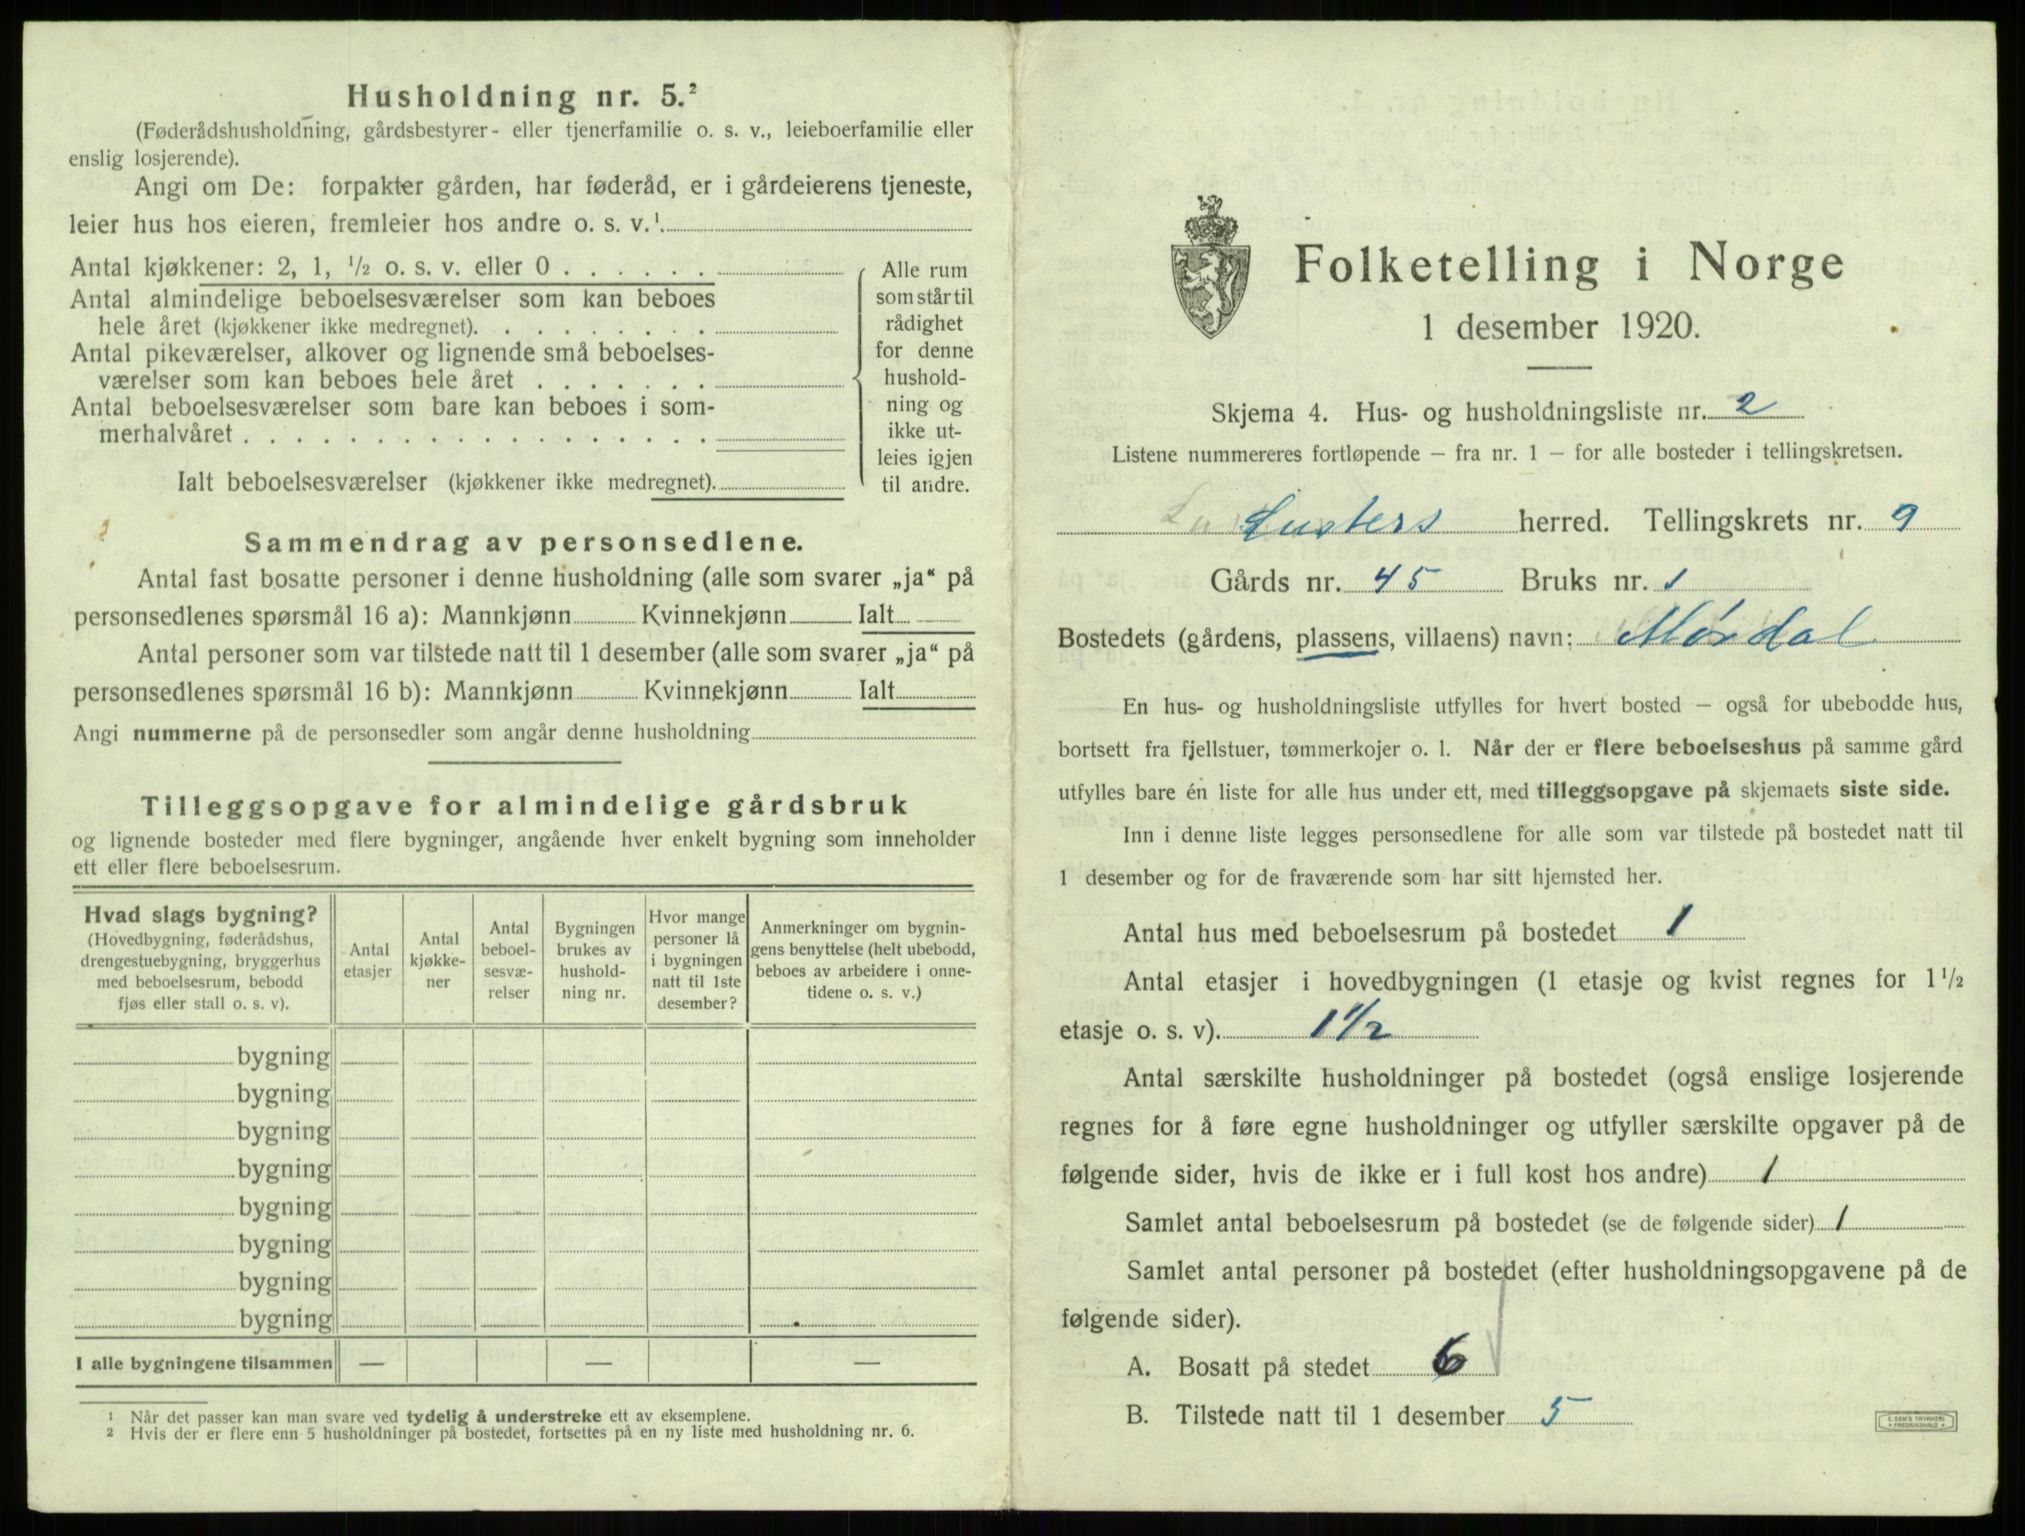 Husholdning nr. 5.²
(Føderådshusholdning, gårdsbestyrer- eller tjenerfamilie o. s. v., leieboerfamilie eller
enslig losjerende).
Angi om De: forpakter gården, har føderåd, er i gårdeierens tjeneste,
leier hus hos eieren, fremleier hos andre o. s. v.¹
Antal kjøkkener: 2, 1, ½ o. s. v. eller 0 . . . . . .
Antal almindelige beboelsesværelser som kan beboes
hele året (kjøkkener ikke medregnet). . . . . . . . .
Antal pikeværelser, alkover og lignende små beboelses-
værelser som kan beboes hele året . . . . . . .
Antal beboelsesværelser som bare kan beboes i som-
merhalvåret . . . . . . . . . . . . . . . . . .
Ialt beboelsesværelser (kjøkkener ikke medregnet).
Alle rum
som står til
rådighet
for denne
hushold-
ning og
ikke ut-
leies igjen
til andre.
Sammendrag av personsedlene.
Antal fast bosatte personer i denne husholdning (alle som svarer „ja“ på
personsedlenes spørsmål 16 a): Mannkjønn Kvinnekjønn Ialt
Antal personer som var tilstede natt til 1 desember (alle som svarer „ja“ på
personsedlenes spørsmål 16 b): Mannkjønn Kvinnekjønn Ialt
Angi nummerne på de personsedler som angår denne husholdning
Tilleggsopgave for almindelige gårdsbruk
og lignende bosteder med flere bygninger, angående hver enkelt bygning som inneholder
ett eller flere beboelsesrum.
Hvad slags bygning?
(Hovedbygning, føderådshus,
drengestuebygning, bryggerhus
med beboelsesrum, bebodd
fjøs eller stall o. s. v).
Antal
etasjer
Antal
kjøkke-
ner
Antal
beboel-
sesvæ-
relser
Bygningen
brukes av
hushold-
ning nr.
Hvor mange
personer lå
i bygningen
natt til 1ste
desember?
Anmerkninger om bygnin-
gens benyttelse (helt ubebodd,
beboes av arbeidere i onne-
tidene o. s. v.)
bygning
bygning
bygning
bygning
bygning
bygning
bygning
bygning
I alle bygningene tilsammen — — —
¹ Når det passer kan man svare ved tydelig å understreke ett av eksemplene.
² Hvis der er flere enn 5 husholdninger på bostedet, fortsettes på en ny liste med husholdning nr. 6.
Folketelling i Norge
1 desember 1920.
Skjema 4. Hus- og husholdningsliste nr. 2
Listene nummereres fortløpende – fra nr. 1 – for alle bosteder i tellingskretsen.
Lusters herred. Tellingskrets nr. 9
Gårds nr. 45 Bruks nr. 1
Bostedets (gårdens, plassens, villaens) navn: Mørdal
En hus- og husholdningsliste utfylles for hvert bosted – også for ubebodde hus,
bortsett fra fjellstuer, tømmerkojer o. l. Når der er flere beboelseshus på samme gård
utfylles bare én liste for alle hus under ett, med tilleggsopgave på skjemaets siste side.
Inn i denne liste legges personsedlene for alle som var tilstede på bostedet natt til
1 desember og for de fraværende som har sitt hjemsted her.
Antal hus med beboelsesrum på bostedet 1
Antal etasjer i hovedbygningen (1 etasje og kvist regnes for 1½
etasje o. s. v). 1½
Antal særskilte husholdninger på bostedet (også enslige losjerende
regnes for å føre egne husholdninger og utfyller særskilte opgaver på de
følgende sider, hvis de ikke er i full kost hos andre) 1
Samlet antal beboelsesrum på bostedet (se de følgende sider) 1
Samlet antal personer på bostedet (efter husholdningsopgavene på de
følgende sider).
A. Bosatt på stedet 6
B. Tilstede natt til 1 desember 5